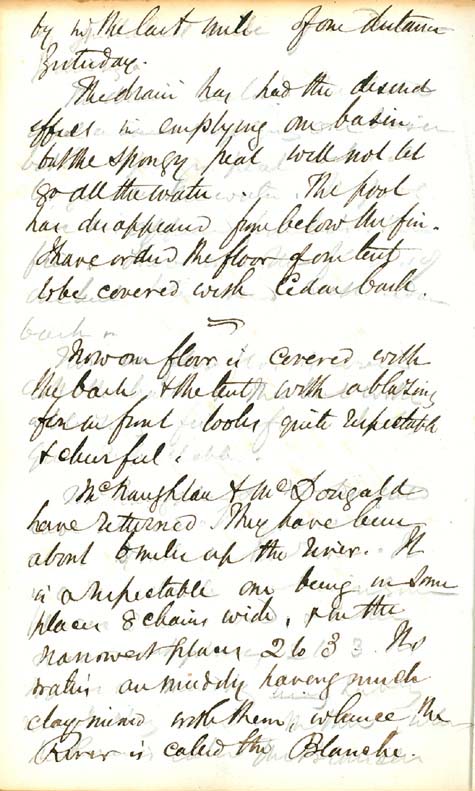 by in the last mile of our distance
yesterday.
The drain has had the desired
effect in emptying our basin
but the spongy peat will not let
go all the water. The pool
has disappeared from below the fire.
I have ordered the floor of our tent
to be covered with Cedar bark.
Now our floor is covered with
the bark, & the tent, with a blazing
fire in front looks quite respectable
& cheerful.
McNaughton & McDougald
have returned They have been
about 6 miles up the river. It
is a respectable one being in some
places 8 chains wide, & in the
narrowest places 2 to 3. Its
waters are muddy having much
clay mixed with them, whence the
River is called the Blanche.